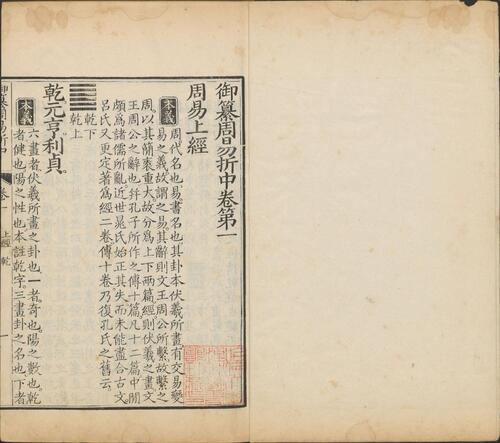 御纂周易折中卷第一
周易上經
本義
周代名也易書名也其卦本伏羲所畫有交易變
易之義故謂之易其辭則文王周公所繫故繫之
周以其簡袠重大故分爲上下兩篇經則伏羲之畫文
王周公之辭也幷孔子所作之傳十篇凡十二篇中閒
頗爲諸儒所亂近世晁氏始正其失而未能盡合古文
呂氏又更定著爲經二卷傳十卷乃復孔氏之舊云
乾下
乾上
乾元亨利貞
本義
六畫者伏羲所畫之卦也一者奇也陽之數也乾
者健也陽之性也本註乾字三畫卦之名也下者
御纂周易折中
卷一
上經 乾
一